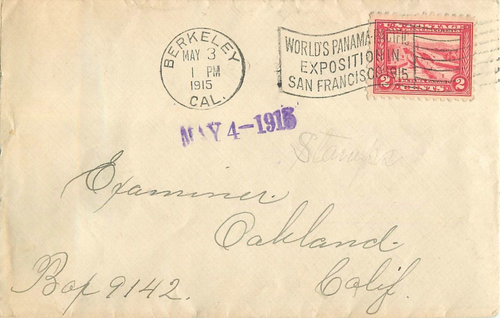 BERKELEY
MAY 3
1 PM
1915
CAL.
WORLD'S PANAMA-PACIFIC
EXPOSITION IN
SAN FRANCISCO 1915
U.S. POSTAGE
2 CENTS 2
MAY 4-1915
Stamps
Examiner.
Oakland.
Box 9142.
Calif.